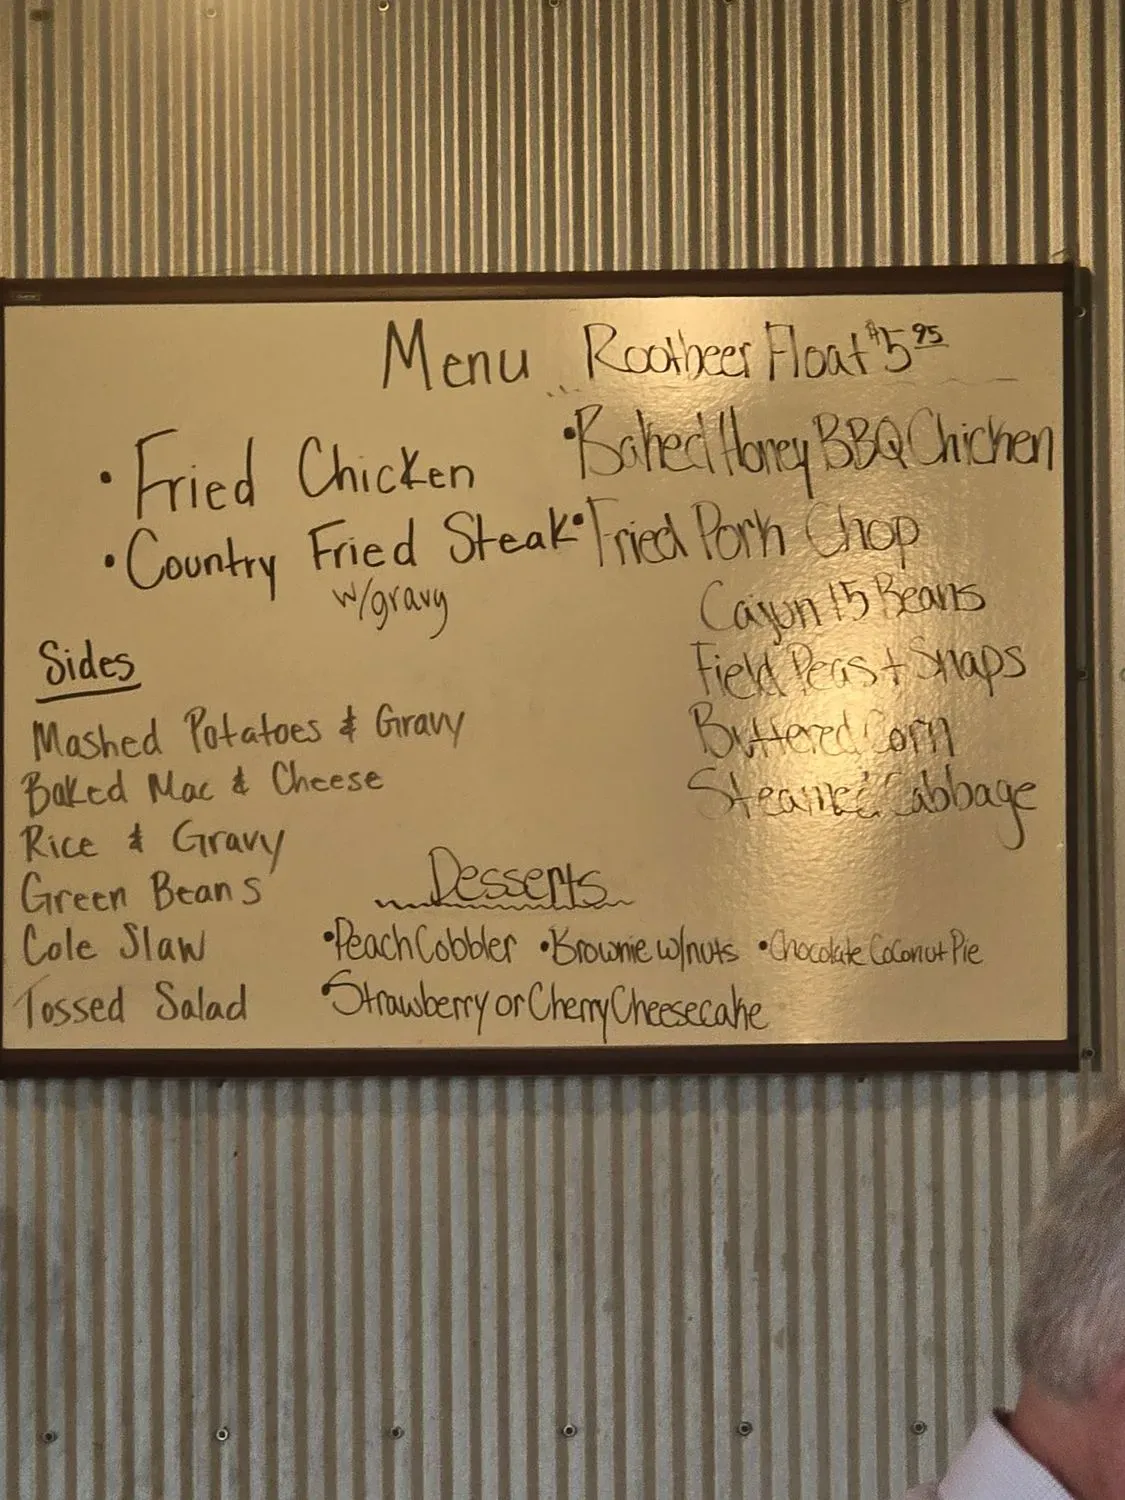 Menu Rootbeer Float $5.95
• Fried Chicken
• Country Fried Steak
w/gravy
• Baked Honey BBQ Chicken
• Fried Pork Chop
Sides
Mashed Potatoes & Gravy
Baked Mac & Cheese
Rice & Gravy
Green Beans
Cole Slaw
Tossed Salad
Cajun 15 Beans
Field Peas + Snaps
Buttered Corn
Steamed Cabbage
Desserts
• Peach Cobbler • Brownie w/nuts • Chocolate Coconut Pie
• Strawberry or Cherry Cheesecake